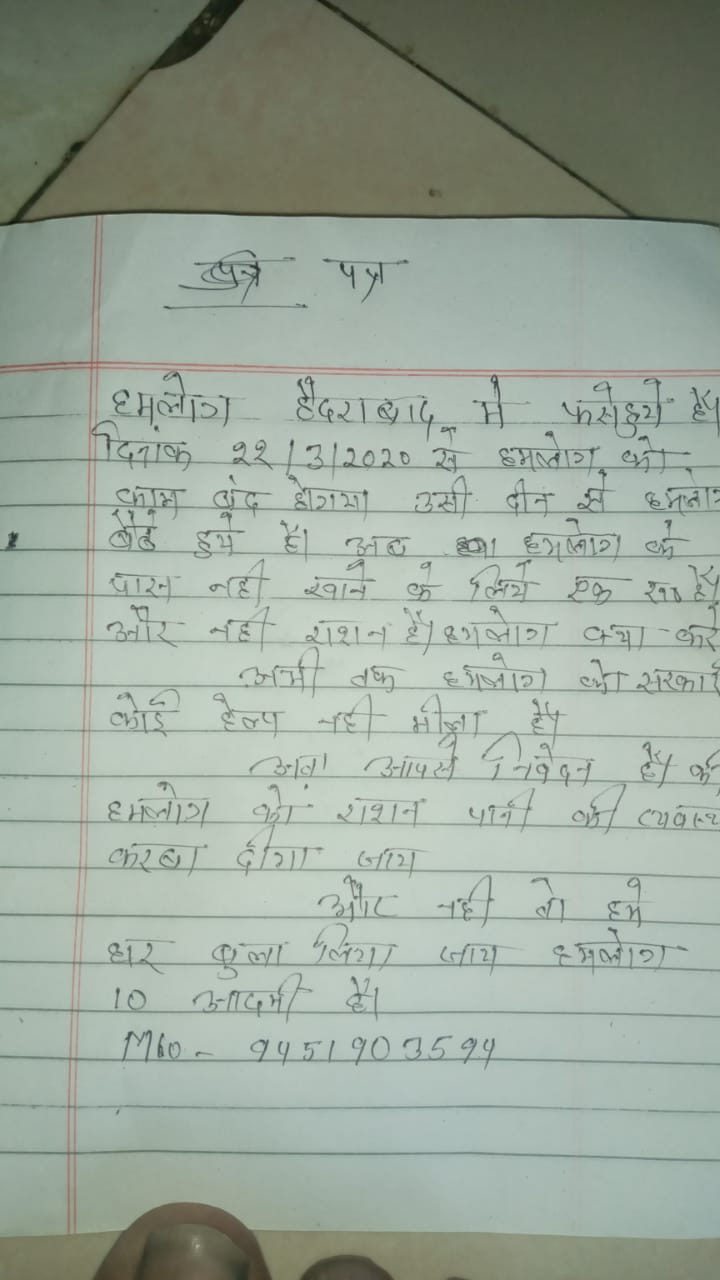 पत्र
हमलोग हैदराबाद मे फसेहुये हैं।
दिनांक 22/3/2020 से हमलोग को
काम बंद होगया उसी दीन से हमलोग
बैठे हुये हैं। अब हमलोग के
पास नही खाने के लिये एक रू० हैं।
और नही राशन हैं। हमलोग क्या करे
अभी तक हमलोग को सरकार
कोई हेल्प नही मीला हैं।
आपसे निवेदन हैं। की
हमलोग को राशन पानी की व्यवस्थ
करबा दीया जाय
और नही तो हमे
घर बुला लिया जाय हमलोग
10 आदमी हैं।
Mbo- 9451903594